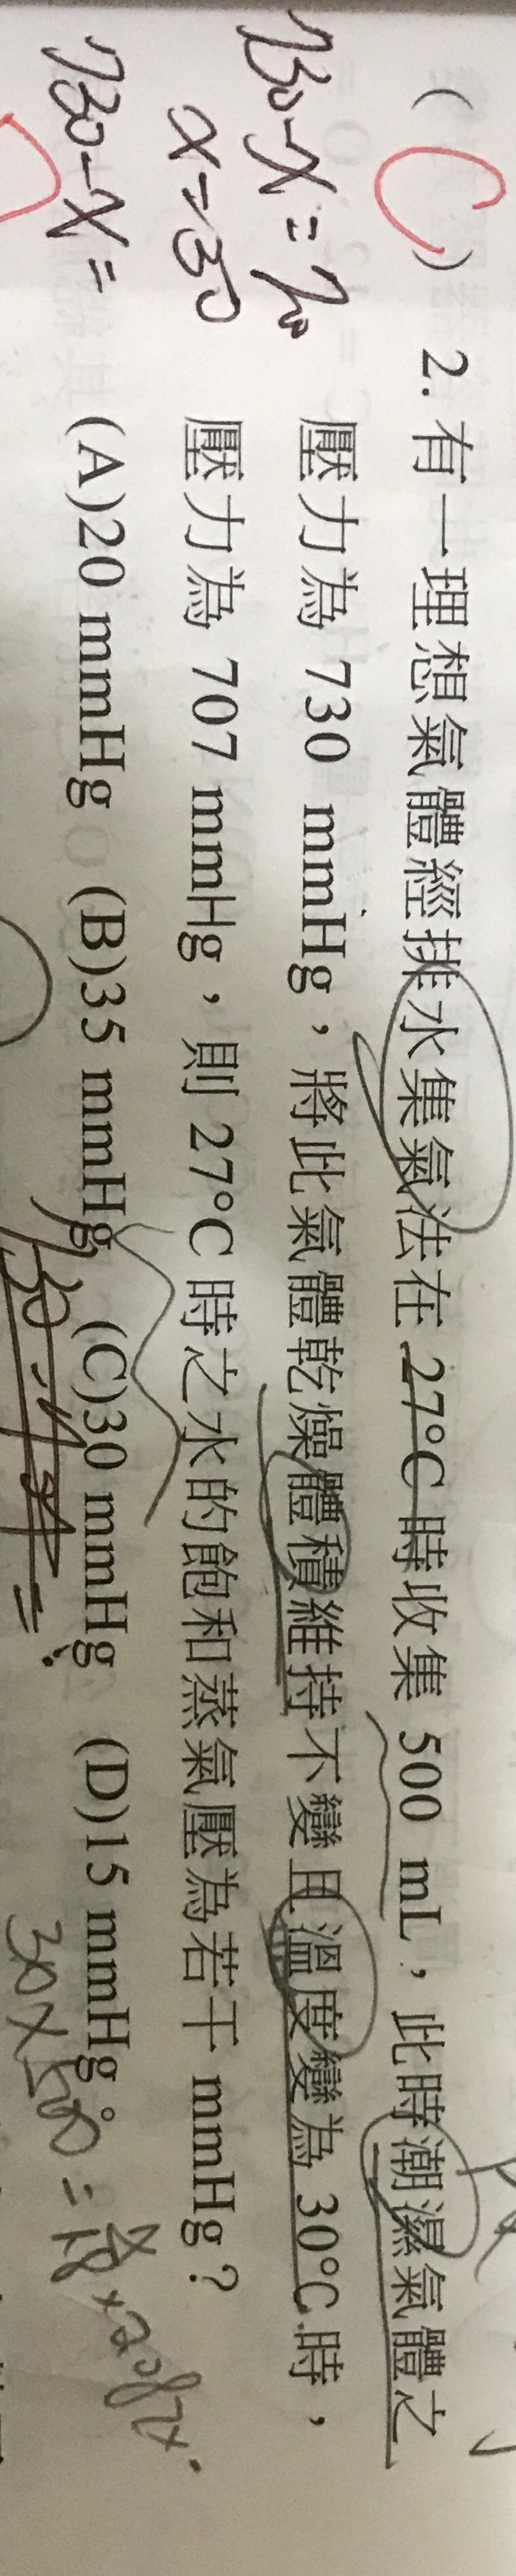 ( C ) 2. 有一理想氣體經排水集氣法在 27°C 時收集 500 mL，此時潮濕氣體之
壓力為 730 mmHg，將此氣體乾燥體積維持不變且溫度變為 30°C 時，
壓力為 707 mmHg，則 27°C 時之水的飽和蒸氣壓為若干 mmHg？
(A)20 mmHg (B)35 mmHg (C)30 mmHg (D)15 mmHg。
x=30
730-x=
30×500=